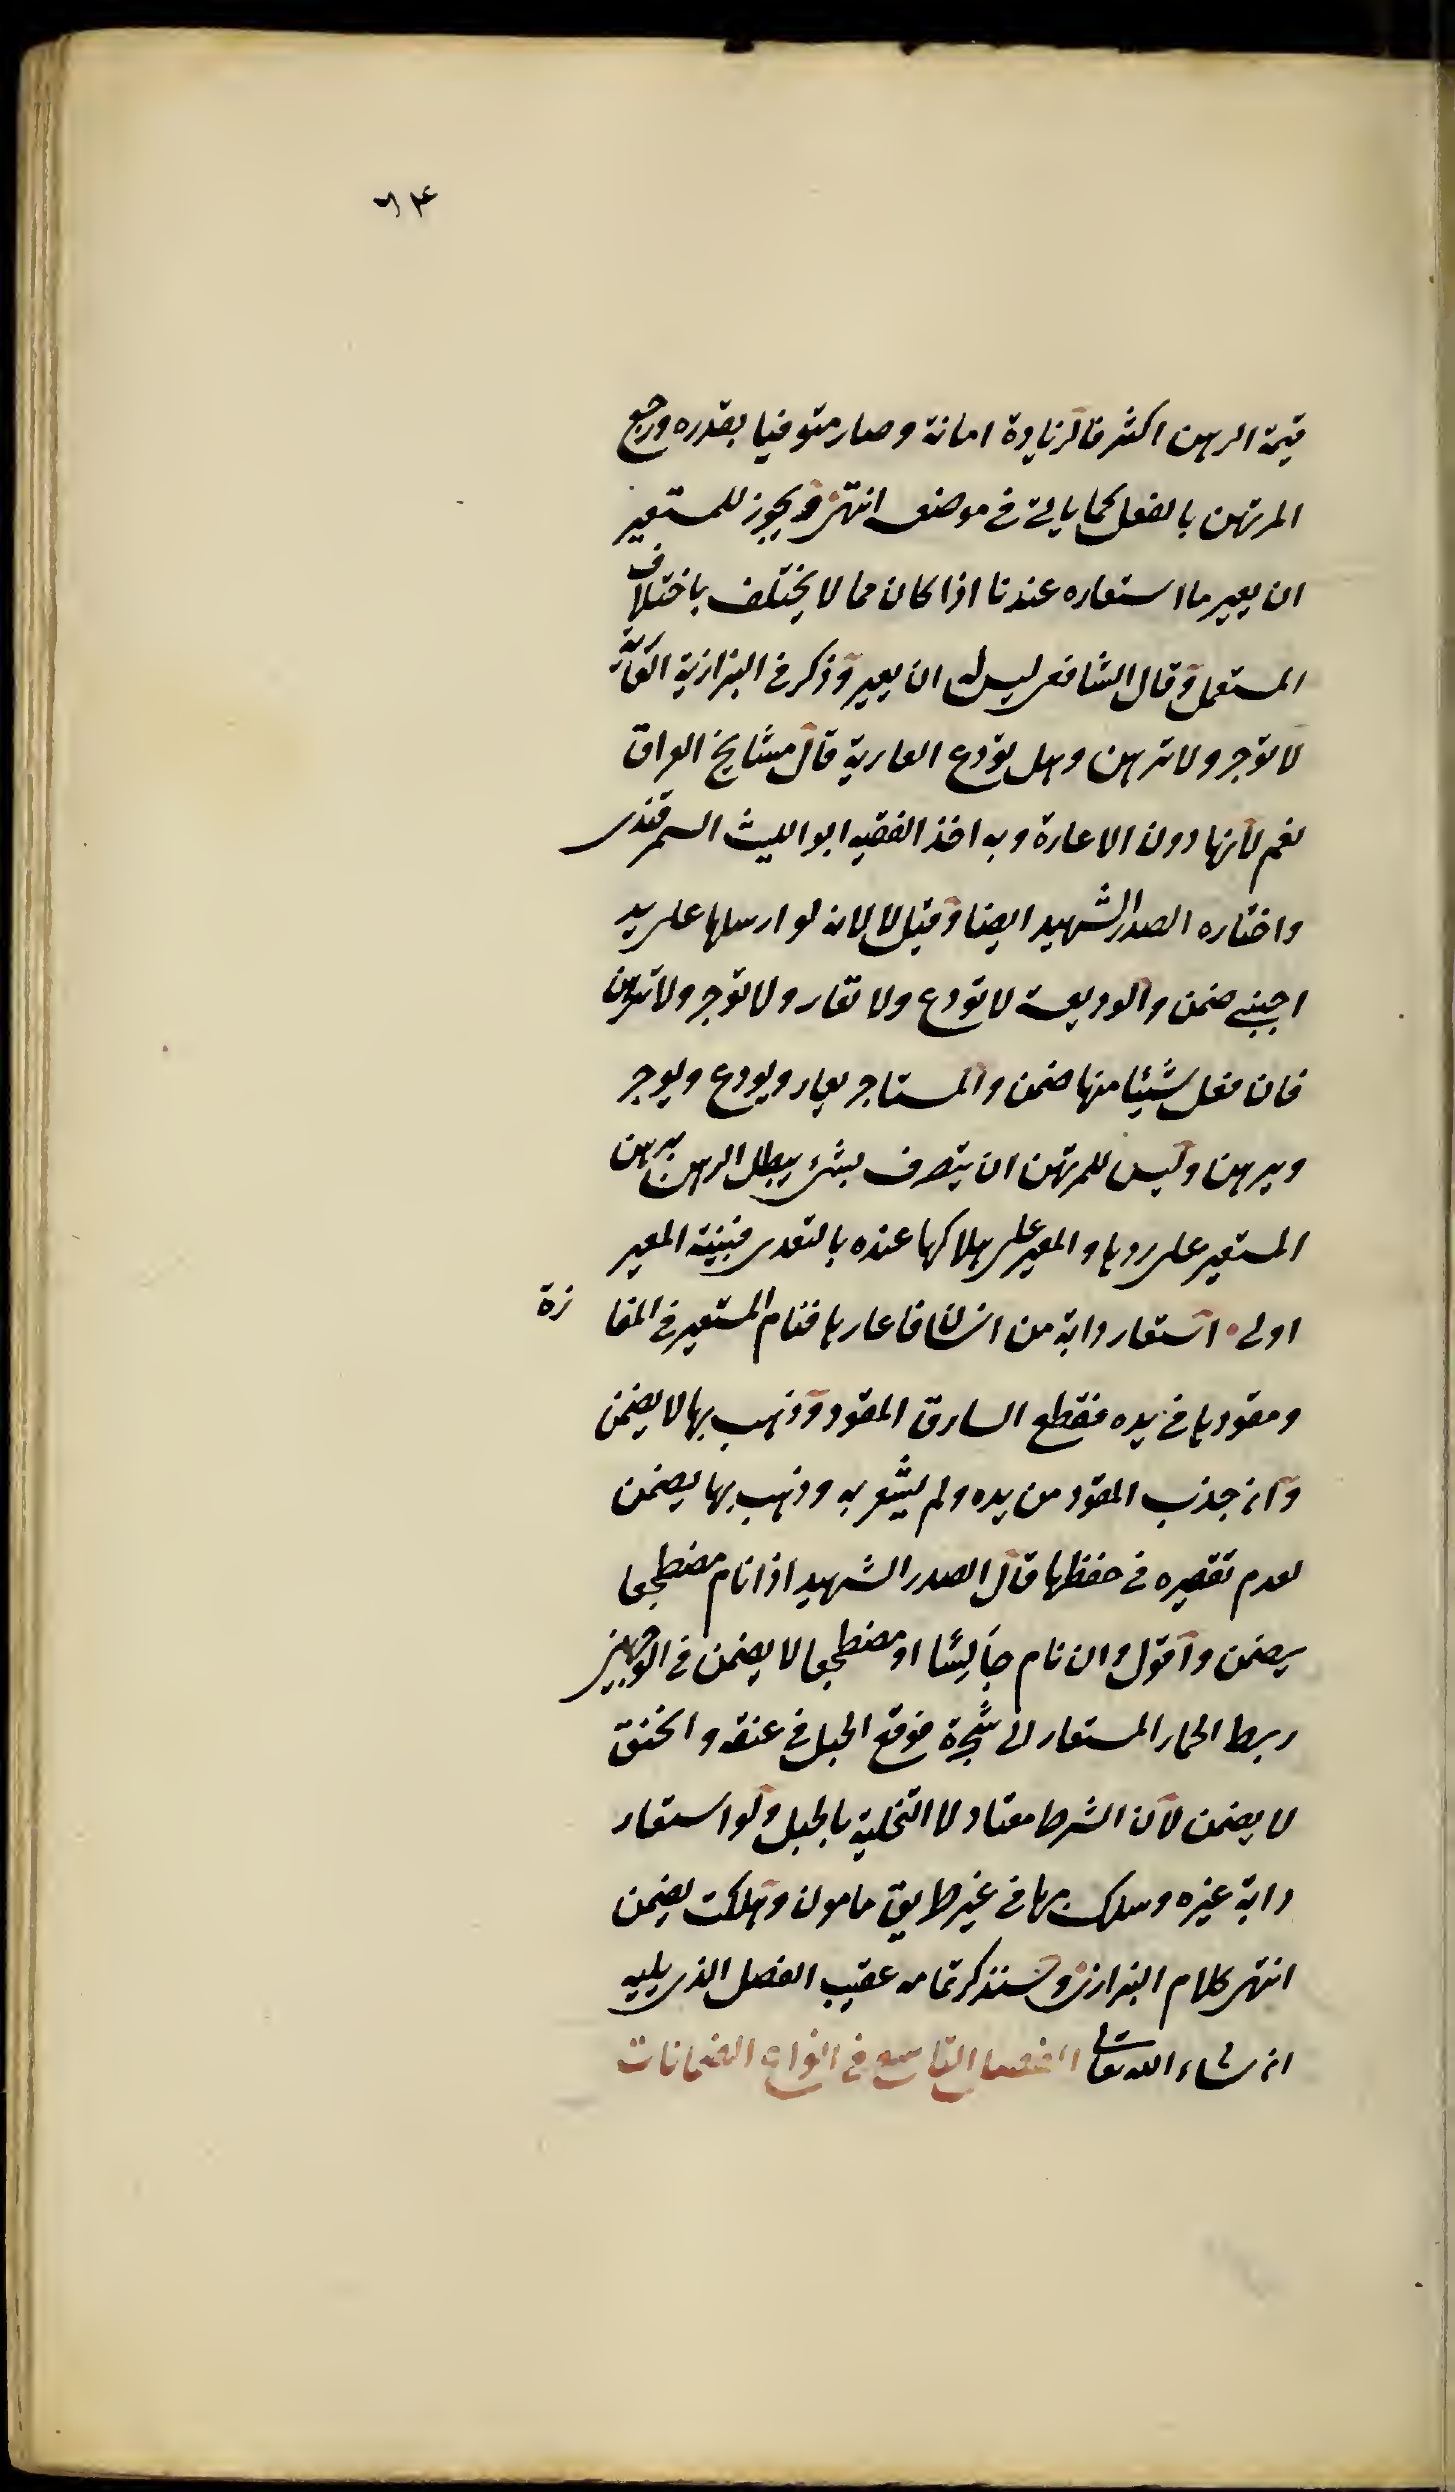 ٦٤
قيمة الرهن اكثر فالزيادة امانة وصار مستوفيا بقدره ورجع
المرتهن بالفضل كما ياتى فى موضعه انتهى ويجوز للمستعير
ان يعير ما استعاره عندنا اذا كان مما لا يختلف باختلاف
المستعمل وقال الشافعى ليس له ان يعير وذكر فى البزازية العارية
لا توجر ولا ترهن وهل تودع العارية قال مشايخ العراق
نعم لانها دون الاعارة وبه اخذ الفقيه ابو الليث السمرقندى
واختاره الصدر الشهيد ايضا وقيل لا لانه لو ارسلها على يد
اجنبى ضمن والوديعة لا تودع ولا تعار ولا توجر ولا ترهن
فان فعل شيئا منها ضمن والمستاجر يعار ويودع ويوجر
ويرهن وليس للمرتهن ان يتصرف بشئ يبطل الرهن برهن
المستعير على ردها والمعير على هلاكها عنده بالتعدى فبينة المعير
اولى استعار دابة من انسان فاعارها فنام المستعير فى المفازة
ومقودها فى يده فقطع السارق المقود وذهب بها لا يضمن
وان جذب المقود من يده ولم يشعر به وذهب بها يضمن
لعدم تقصيره فى حفظها قال الصدر الشهيد اذا نام مضطجعا
يضمن واقول وان نام جالسا او مضطجعا لا يضمن فى الوجهين
ربط الحمار المستعار الى شجرة فوقع الحبل فى عنقه وانخنق
لا يضمن لان الشرط معتاد لا التخلية بالحبل ولو استعار
دابة غيره وسلك بها فى غير طريق مامون وهلكت يضمن
انتهى كلام البزازى وسنذكر تمامه عقيب الفصل الذى يليه
ان شاء الله تعالى الفصل التاسع فى انواع الضمانات